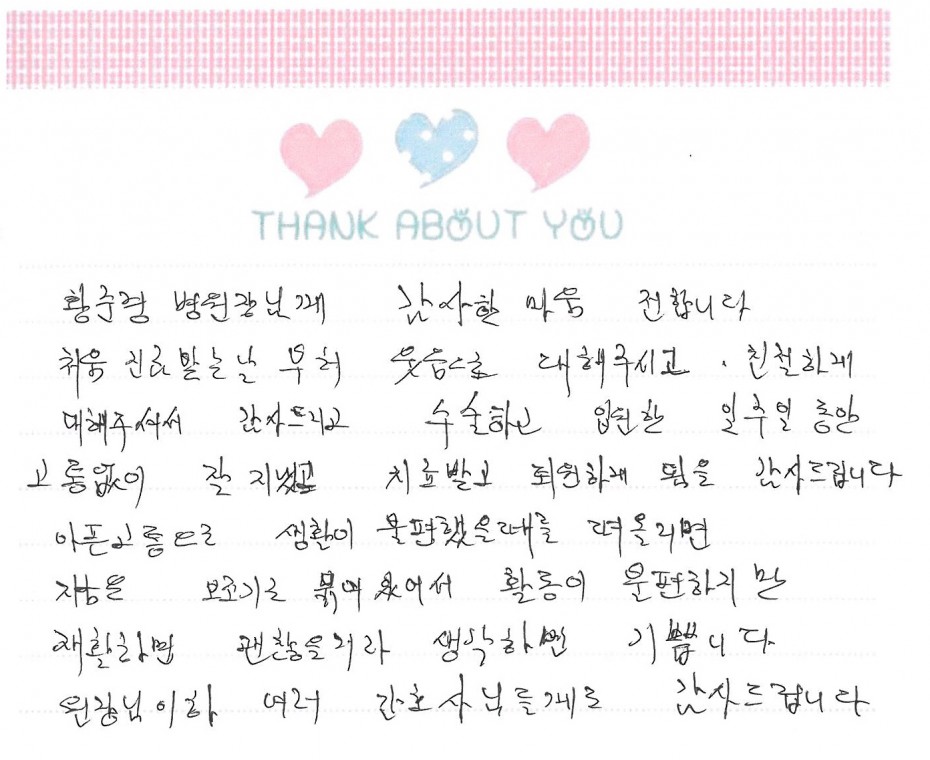 THANK ABOUT YOU
황준경 병원장님게 감사한 마음 전합니다
처음 진료 받는날 부터 웃음으로 대해주시고 . 친철하게
대해주셔서 감사드리고 수술하고 입원한 일주일 동안
고통없이 잘 지냈고 치료받고 퇴원하게 됨을 감사드립니다
아픈고통으로 생활이 불편했을때를 떠올리면
지금은 보조기로 묶여 있어서 활동이 불편하지만
재활하면 괜찮을거라 생각하면 기쁩니다
원장님이하 여러 간호사님들게도 감사드립니다